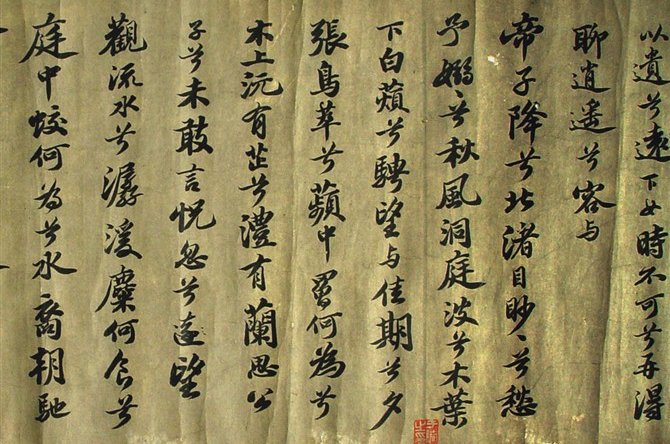 以遺兮遠下女時不可兮再得
聊逍遥兮容与
帝子降兮北渚目眇〻兮愁
予嫋〻兮秋風洞庭波兮木葉
下白蘋兮騁望与佳期兮夕
張鳥萃兮蘋中罾何為兮
木上沅有芷兮澧有蘭思公
子兮未敢言怳忽兮遠望
觀流水兮潺湲麋何食兮
庭中蛟何為兮水裔朝馳